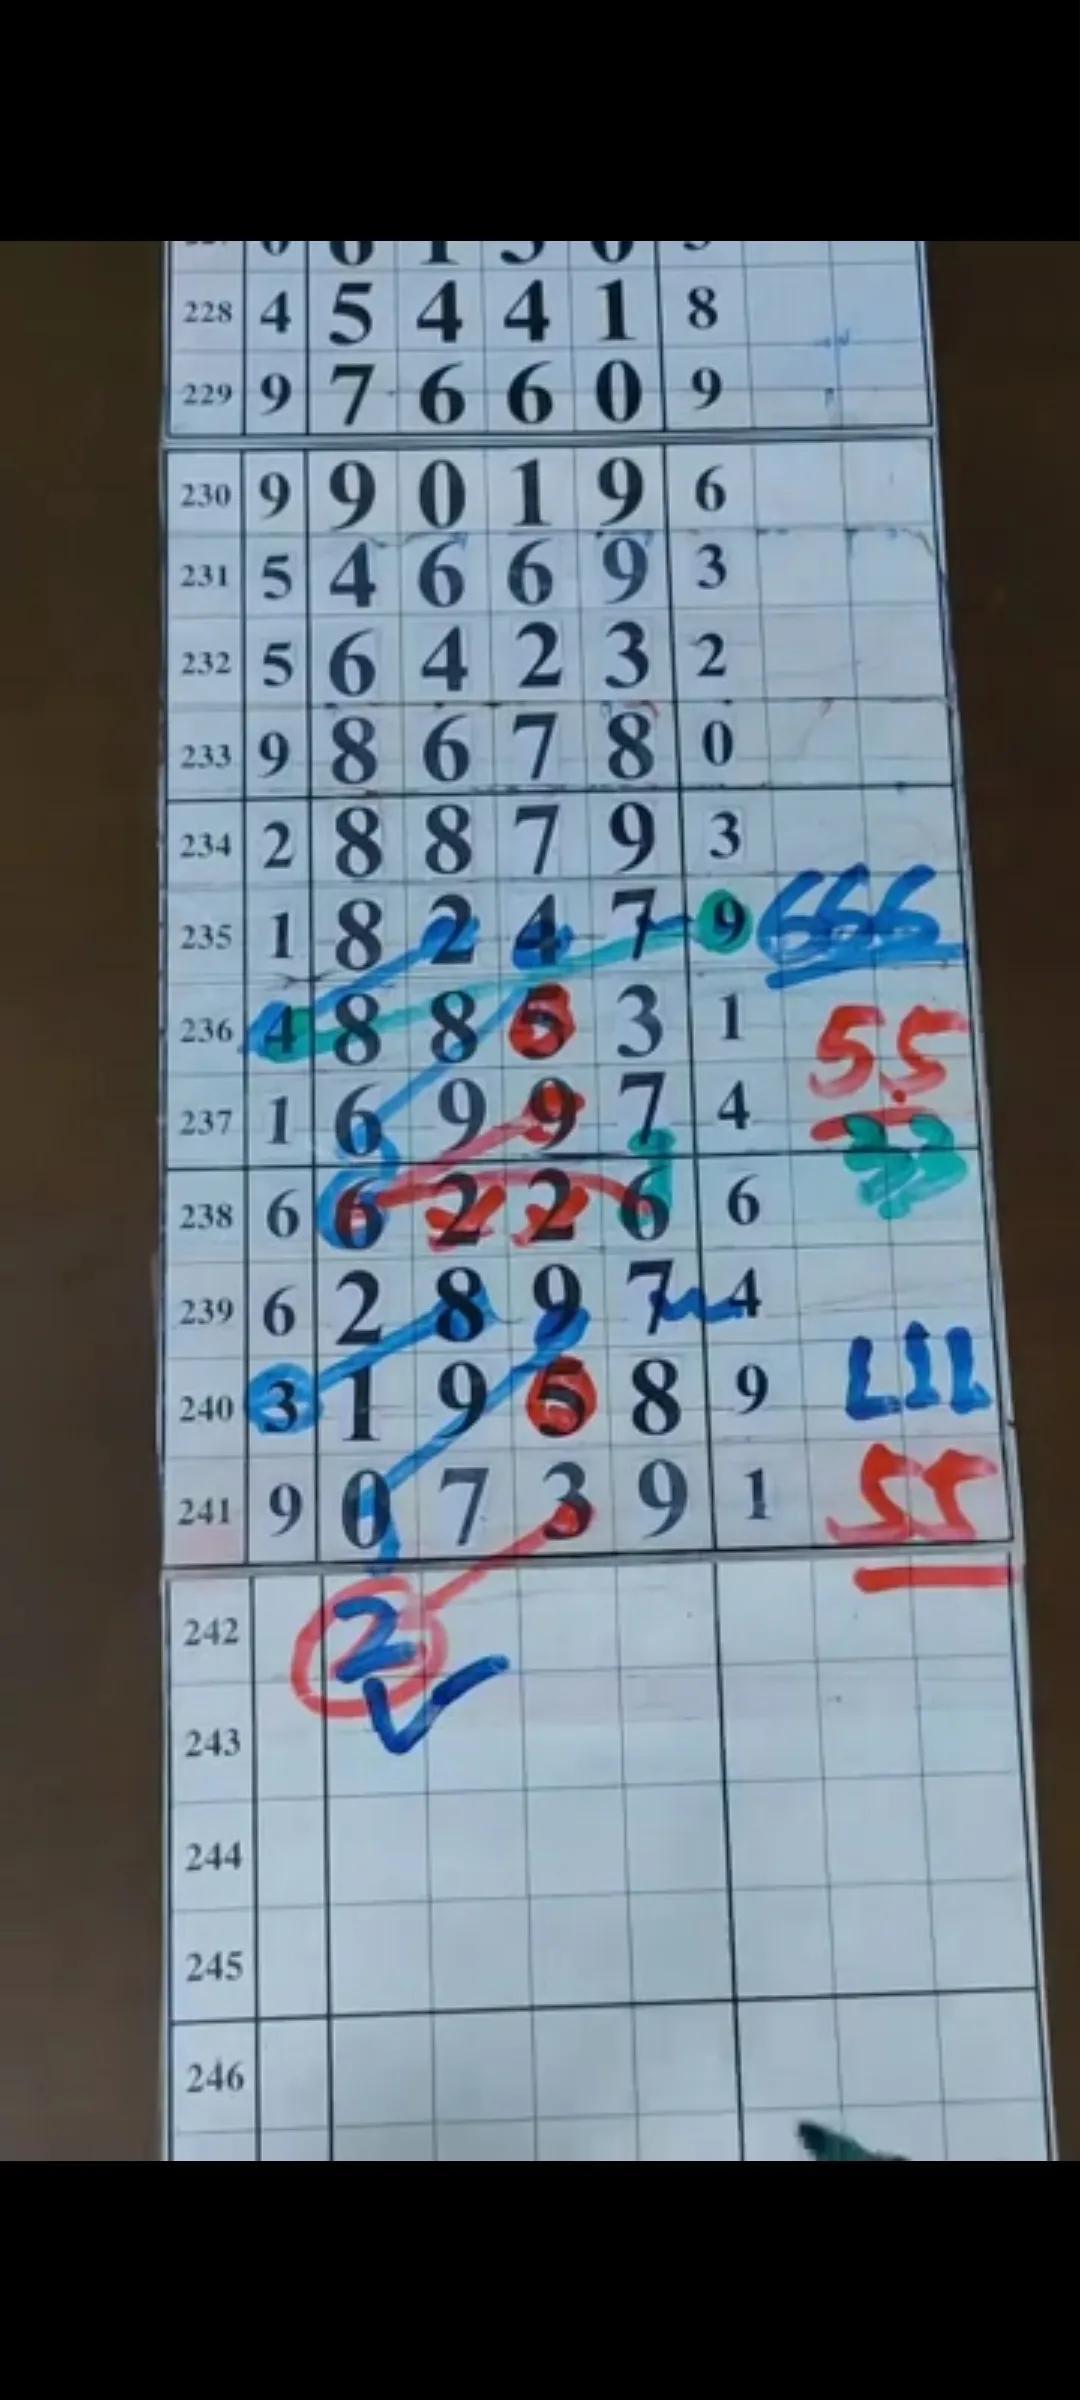 228 4 5 4 4 1 8
229 9 7 6 6 0 9
230 9 9 0 1 9 6
231 5 4 6 6 9 3
232 5 6 4 2 3 2
233 9 8 6 7 8 0
234 2 8 8 7 9 3
235 1 8 2 4 7 9 666
236 4 8 8 5 3 1 55
237 1 6 9 9 7 4 33
238 6 6 2 2 6 6
239 6 2 8 9 7 4
240 3 1 9 5 8 9
241 9 0 7 3 9 1 55
242 2
243
244
245
246